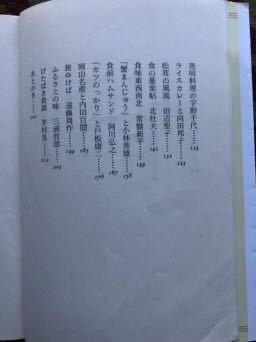 発明料理の宇野千代……114
ライスカレーと向田邦子……123
松茸の風流 田辺聖子……132
食の蔓葉帖 北杜夫……141
食味東西南北 常盤新平……149
「蟹まんじゅう」と小林秀雄……158
食前ハムサンド 阿川弘之……167
「カツのっかり」と戸板康二……176
岡山名産と内田百閒……185
旅ゆけば 遠藤周作……194
ふるさとの味 三浦哲郎……203
げたばき食談 半村良……212
あとがき……